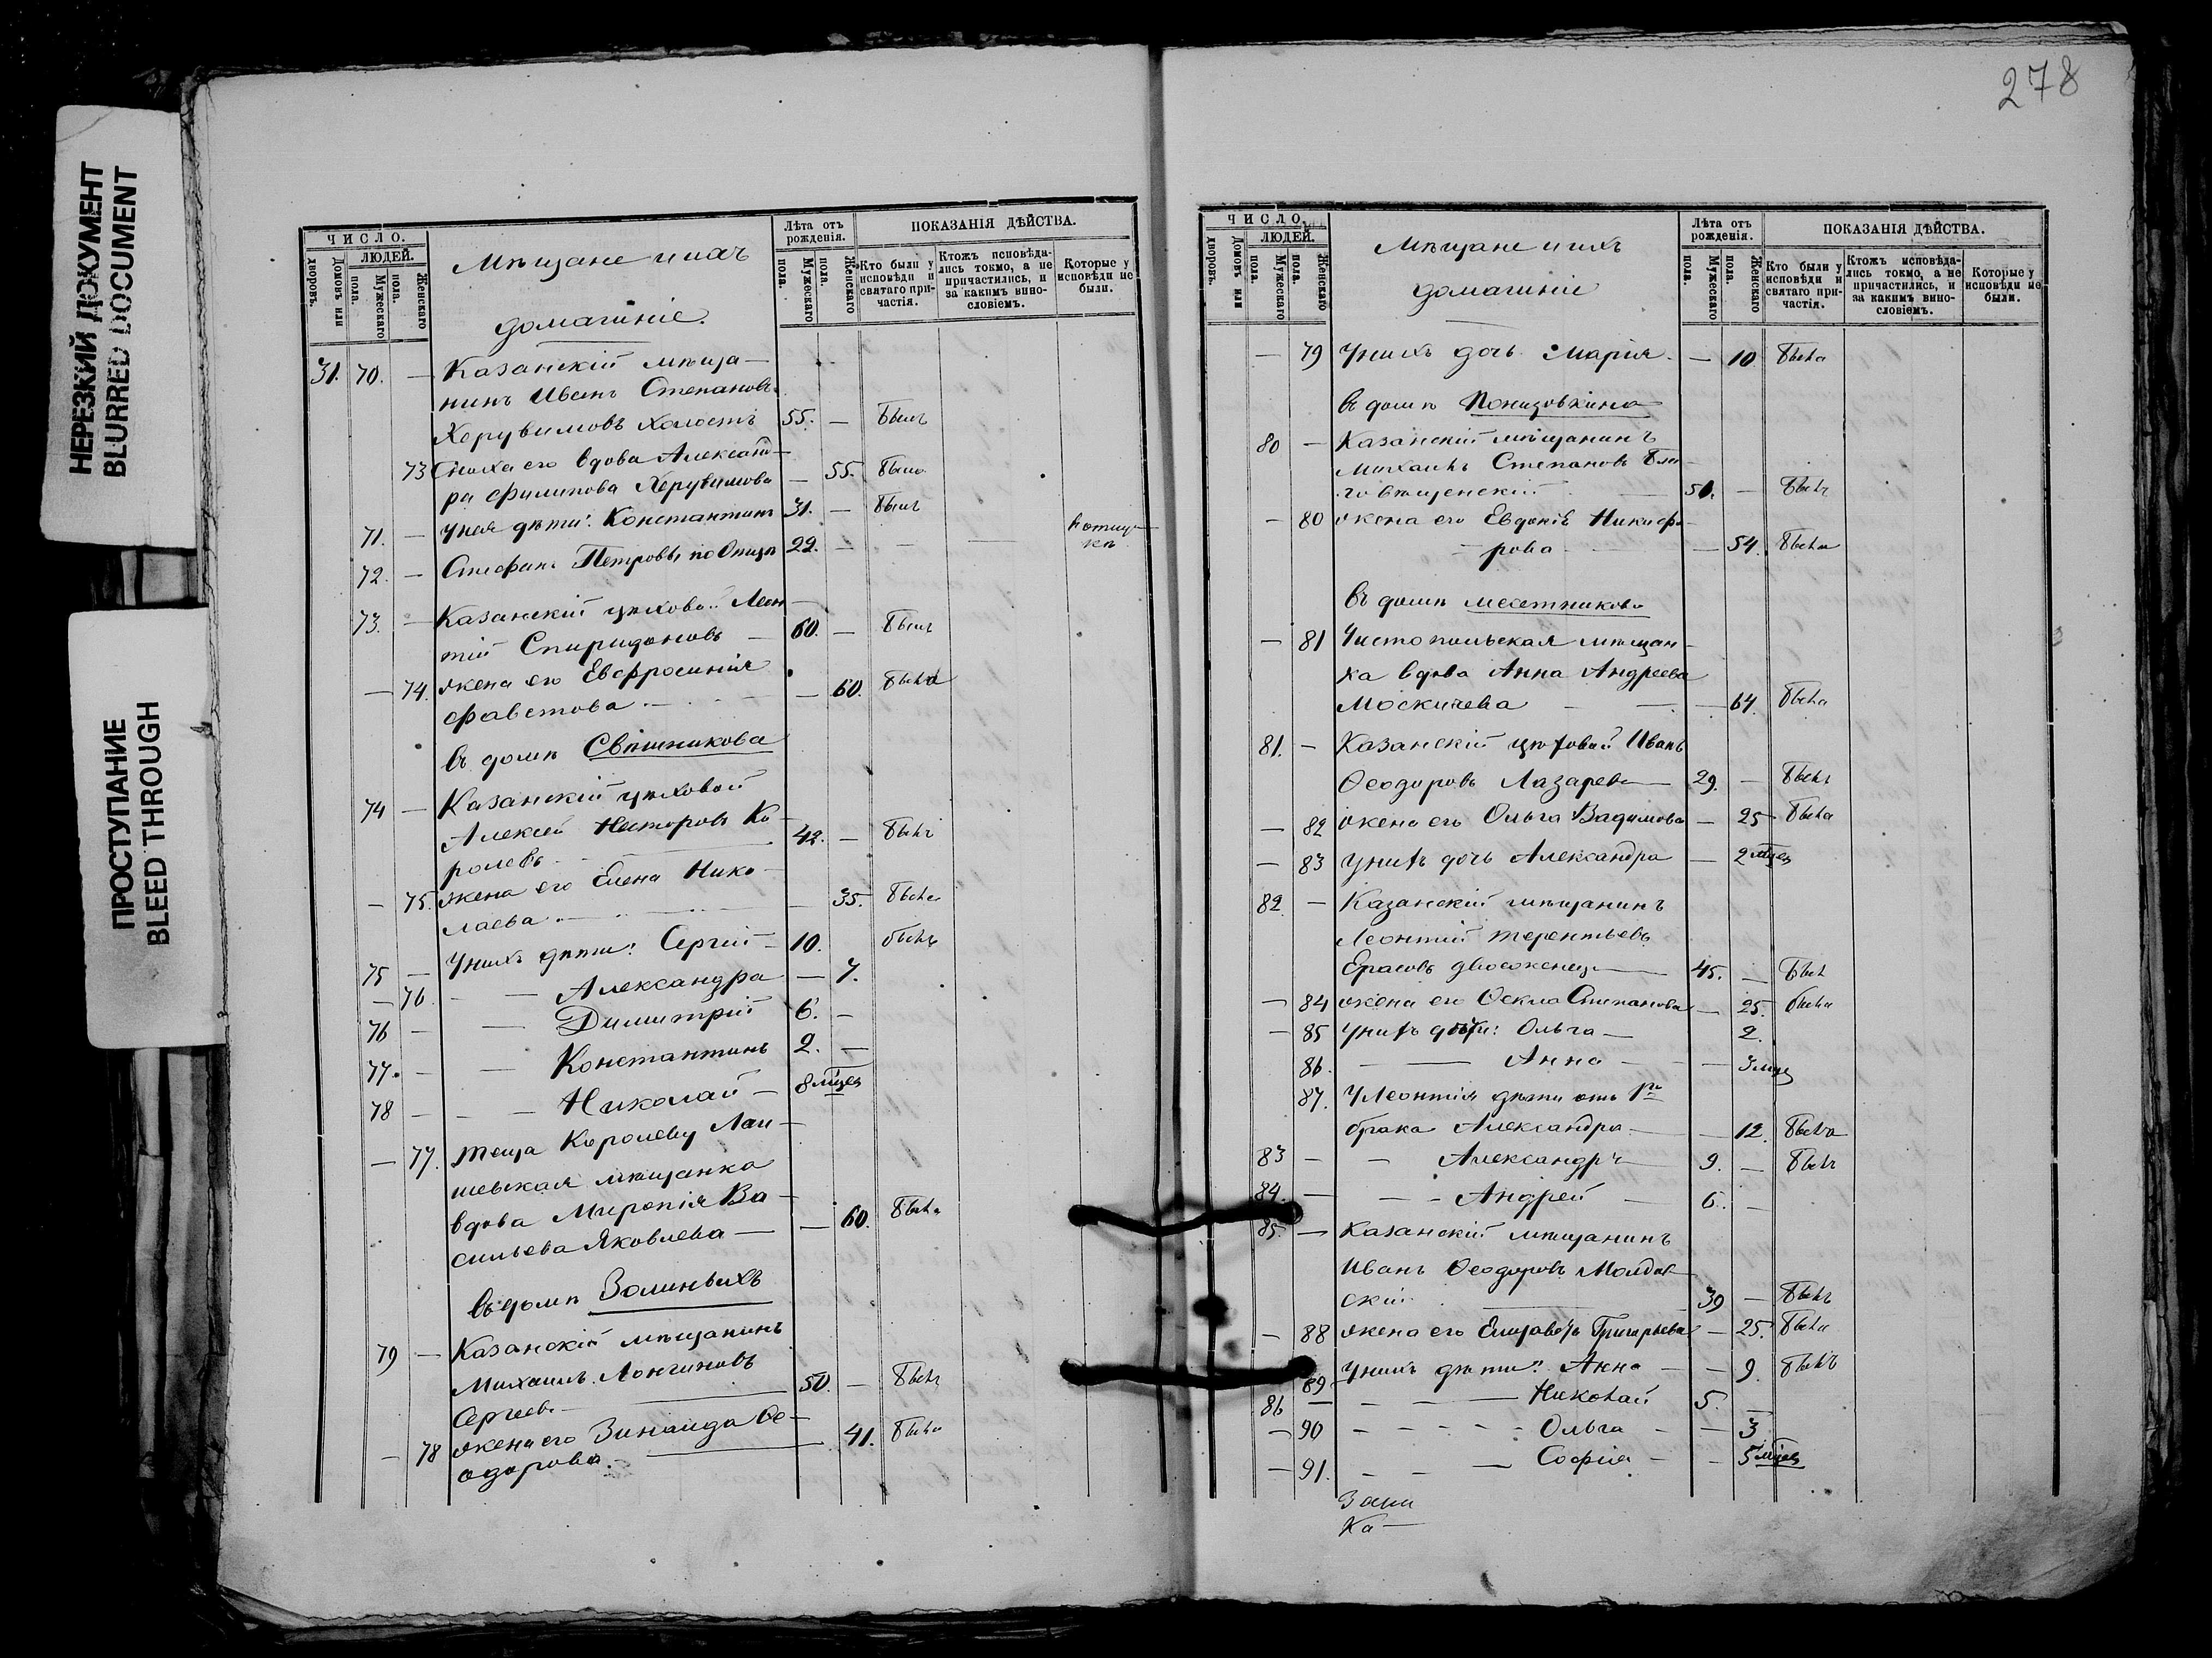 278
НЕРЕЗКИЙ ДОКУМЕНТ
BLURRED DOCUMENT
ПРОСТУПАНИЕ
BLEED THROUGH
ЧИСЛО.
ЛЮДЕЙ.
Домовъ или дворовъ.
Мужескаго пола.
Женскаго пола.
Мѣщане и ихъ
домашніе.
Лѣта отъ рожденія.
Мужескаго пола.
Женскаго пола.
ПОКАЗАНІЯ ДѢЙСТВА.
Кто были у исповѣди и святаго причастія.
Ктожъ исповѣдались токмо, а не причастились, и за какимъ винословіемъ.
Которые у исповѣди не были.
31. 70. — Казанскій мѣща-
нинъ Иванъ Степановъ
Херувимовъ холостъ 55. — былъ
73 Сноха его вдова Александ-
ра Филипова Херувимова — 55. была
71. — У нея дѣти: Константинъ 31. — былъ
72. — Стефанъ Петровы 22. — — —
73. — Казанскій цѣховой Леон-
тій Спиридоновъ — 60. — былъ
— 74. жена его Евфросинія
Фавстова — 60. была
въ домѣ Свѣшникова
74 — Казанскій цѣховой
Алексей Несторовъ Ко-
ролевъ 42. — былъ
— 75. жена его Елена Нико-
лаева — 35. была
75 — У нихъ дѣти: Сергій — 10. былъ
— 76 — — Александра — 7.
76 — — Димитрій 6. —
77. — — Константинъ 2. —
78 — — — Николай — 8 мѣцев
— 77. теща Королеву Лаи-
шевская мѣщанка
вдова Миропія Ва-
сильева Яковлева — — 60. была
въ домѣ Золиныхъ
79 — Казанскій мѣщанинъ
Михаилъ Лонгиновъ
Сергеев 50. — былъ
— 78 жена его Зинаида Ѳе-
одорова 41. была
ЧИСЛО.
ЛЮДЕЙ.
Домовъ или дворовъ.
Мужескаго пола.
Женскаго пола.
Мѣщане и ихъ
домашніе
Лѣта отъ рожденія.
Мужескаго пола.
Женскаго пола.
ПОКАЗАНІЯ ДѢЙСТВА.
Кто были у исповѣди и святаго причастія.
Ктожъ исповѣдались токмо, а не причастились, и за какимъ винословіемъ.
Которые у исповѣди не были.
— 79 У нихъ дочь Марія. — 10 была
въ домѣ Понизовкина
80 — Казанскій мѣщанинъ
Михаилъ Степановъ Бла-
говѣщенскій 50. — былъ
— 80 жена его Евдокія Никифо-
рова — 54. была
въ домѣ
— 81 Чистопольская мѣщан-
ка вдова Анна Андреева
Москичева — — — 64. была
81. — Казанскій цѣховой Иванъ
Ѳеодоровъ Лазарев — 29. — былъ
— 82 жена его Ольга Вадимова — 25 была
— 83 у нихъ дочь Александра — 2 мѣцев
82 — Казанскій мѣщанинъ
Леонтий Терентьевъ
Ерасовъ двоеженец 45. — был
— 84 жена его Ѳекла Степанова — 25. была
— 85 у нихъ дѣти: Ольга — 2.
86. — — Анна — — 3 мѣц
87. У Леонтія дѣти отъ 1го
брака Александра — — 12. была
83 — — Александръ 9. — былъ
84. — — - Андрей — 6. —
85. — Казанскій мѣщанинъ
Иванъ Ѳеодоровъ Молдав-
скій 39 — былъ
— 88 жена его Елизаветъ Григорьева — 25. была
89 у нихъ дѣти: Анна — — 9. былъ
86 — — — — Николай 5. —
— 90 — - - - - Ольга - — 3
— 91. — — — Софія — - 5 мѣцев
Ка-